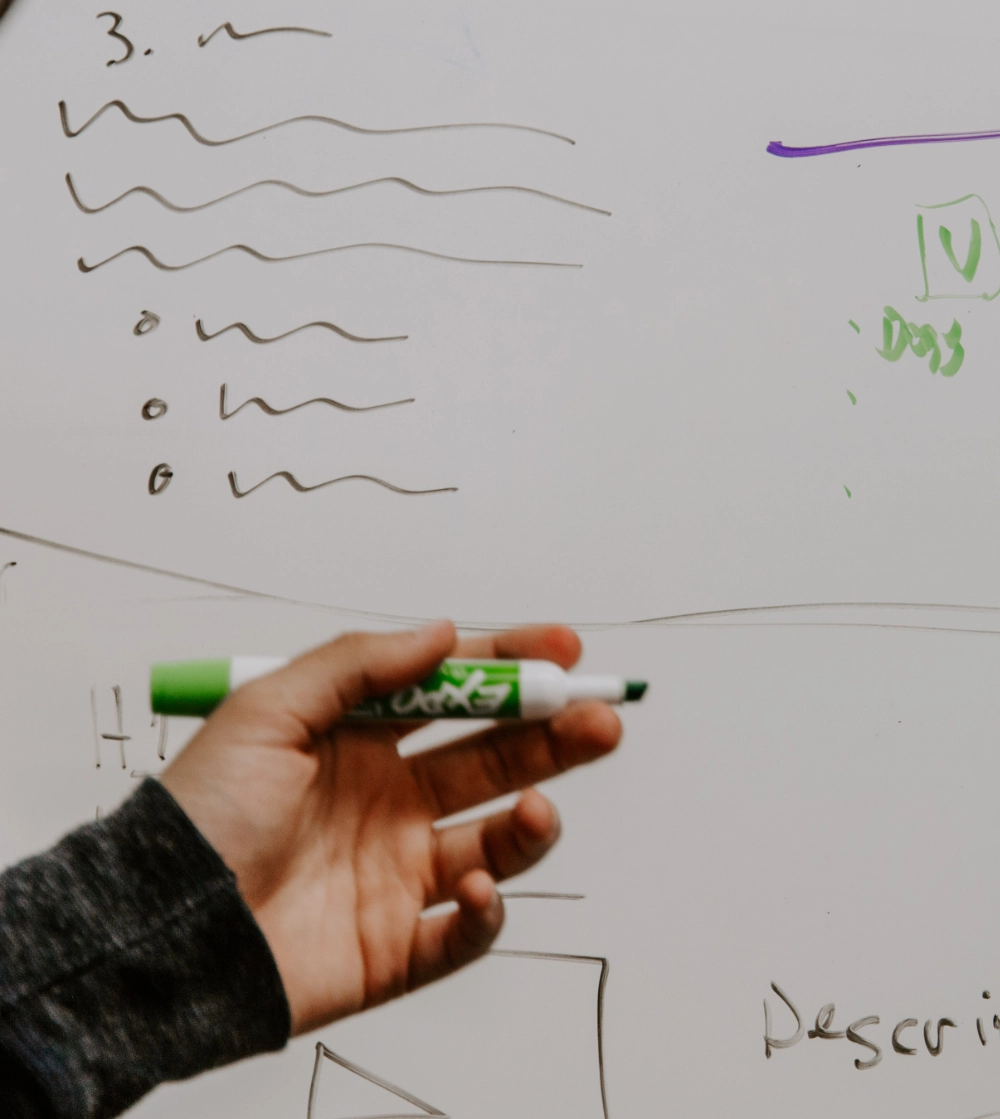 3.
V
Dogs
EXPO
H
Descri